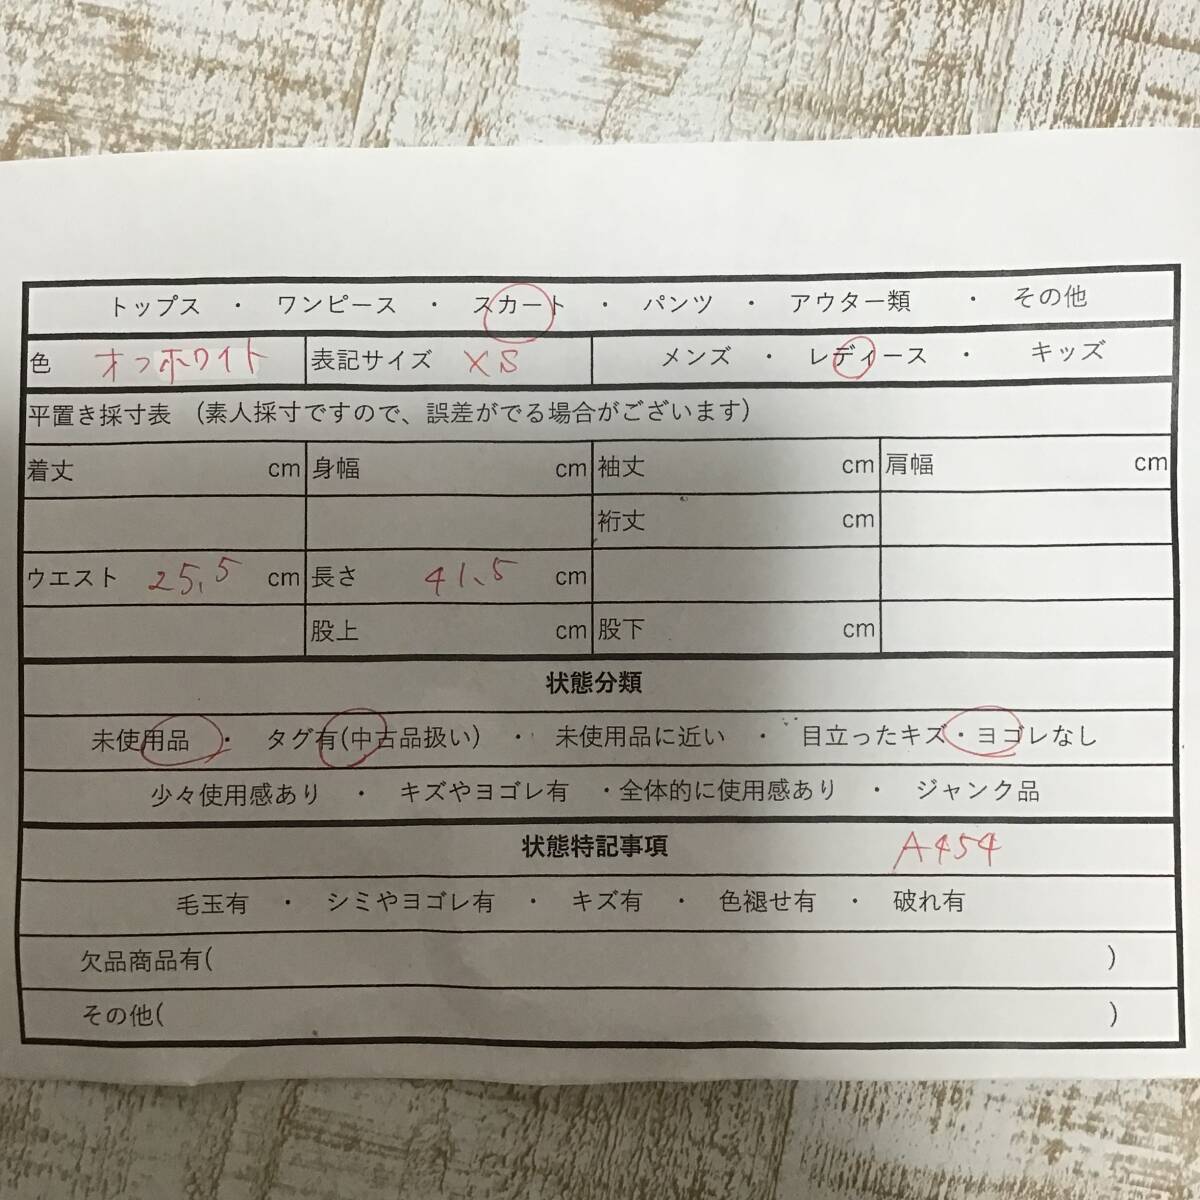 トップス ・ ワンピース ・ スカート ・ パンツ ・ アウター類 ・ その他
色 オフホワイト 表記サイズ XS メンズ ・ レディース ・ キッズ
平置き採寸表 (素人採寸ですので、誤差がでる場合がございます)
着丈 cm 身幅 cm 袖丈 cm 肩幅 cm
裄丈 cm
ウエスト 25.5 cm 長さ 41.5 cm
股上 cm 股下 cm
状態分類
未使用品 ・ タグ有(中古品扱い) ・ 未使用品に近い ・ 目立ったキズ・ヨゴレなし
少々使用感あり ・ キズやヨゴレ有 ・全体的に使用感あり ・ ジャンク品
状態特記事項 A454
毛玉有 ・ シミやヨゴレ有 ・ キズ有 ・ 色褪せ有 ・ 破れ有
欠品商品有( )
その他( )